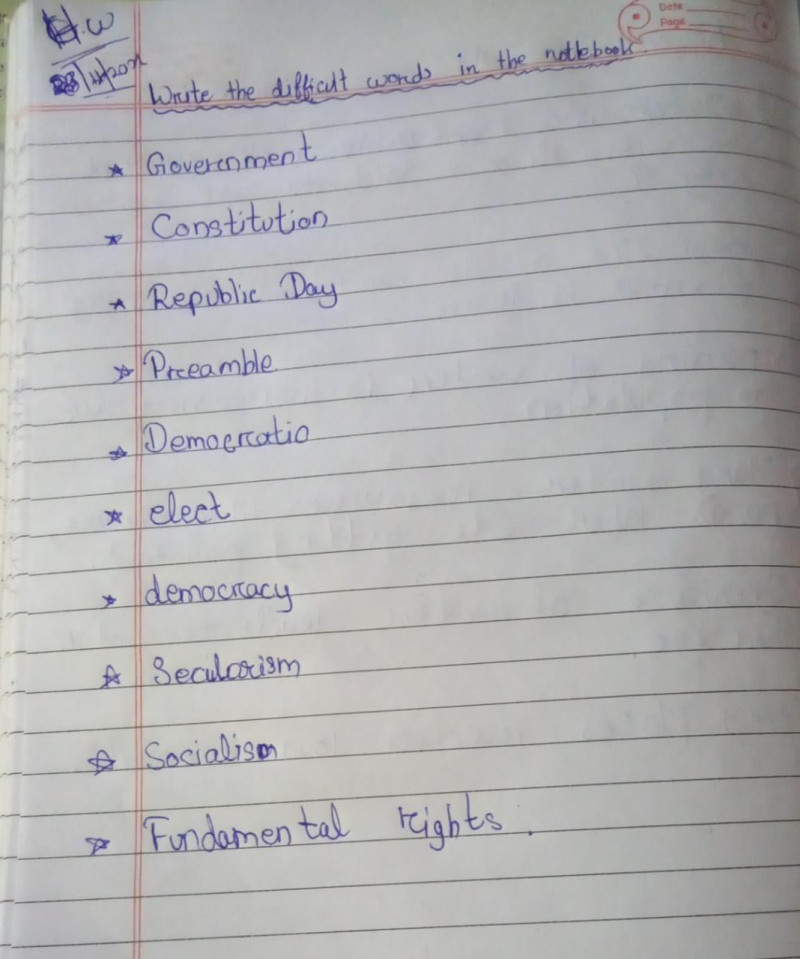 H.W
Date
Page
Write the difficult words in the notebook
★ Government
★ Constitution
★ Republic Day
★ Preamble
★ Democratio
★ elect
★ democracy
★ Secularism
★ Socialism
★ Fundamental rights.